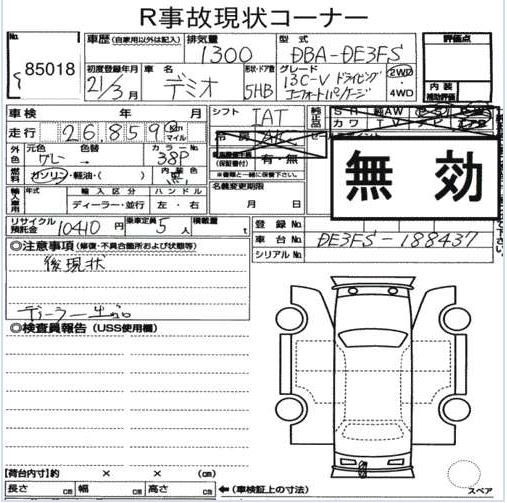 R事故現状コーナー
No. 85018
車歴 (自家用以外は記入) 排気量 1300 型式 DBA-DE3FS 評価点
初度登録年月 21/3月 車名 デミオ 形状・ドア数 5HB グレード 13C-V ドライビング コンフォートパッケージ 2WD 4WD 内装 補助評価
車検 年 月 シフト IAT 純正品 SR 純AW
走行 26,859 km マイル 冷房 AAC カワ TV
外色 元色 グレー 色替 → カラーNo. 38P 有・無 無効
燃料 ガソリン・軽油・( ) 内装色 黒 ※書類と一緒に保管下さい。
輸入車用 年式 輸入区分 ハンドル 名義変更期限
ディーラー・並行 左・右 月 日
リサイクル預託金 10410円 乗車定員 5人 積載量 t 登録No.
車台No. DE3FS-188437
シリアルNo.
◎注意事項 (修復・不具合箇所および状態等)
後現状
◎検査員報告 (USS使用欄)
【荷台内寸】約 × × (cm)
長さ cm 幅 cm 高さ cm ←(車検証上の寸法)
スペア